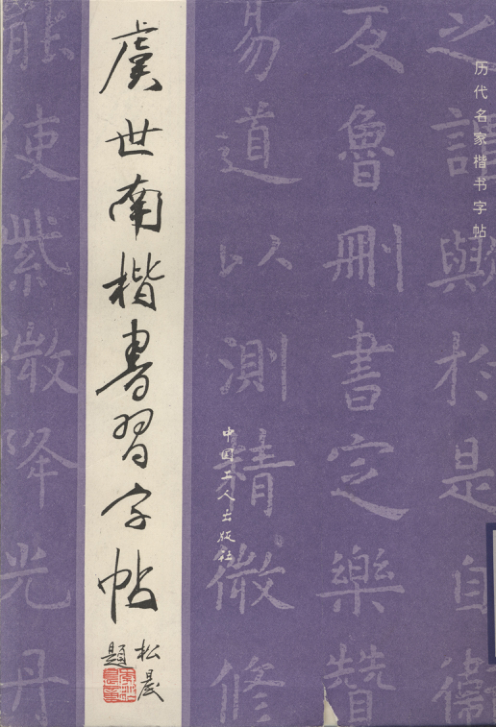 历代名家楷书字帖
虞世南楷書習字帖
松晨
題
中国工人出版社
之
於是自衛
反魯刪書定樂贊
易道以測精微修
能使紫微降光丹